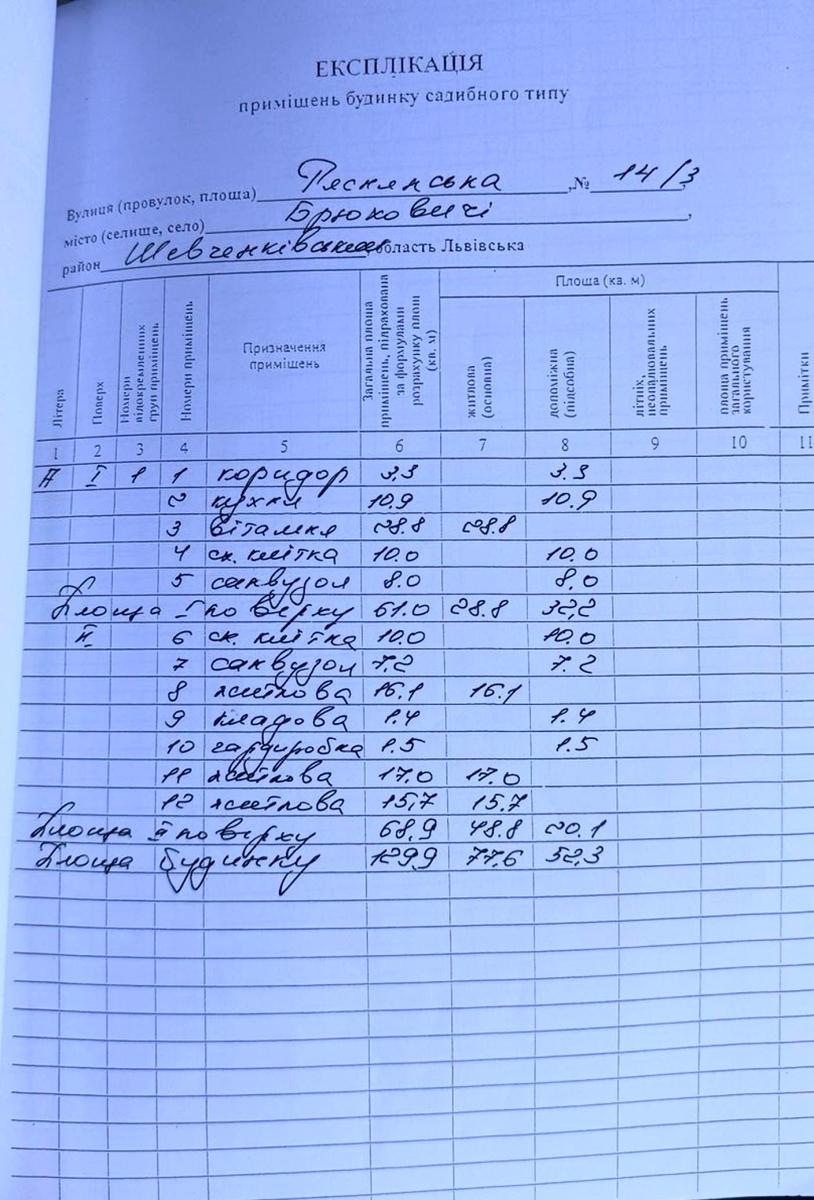 ЕКСПЛІКАЦІЯ
приміщень будинку садибного типу
Вулиця (провулок, площа) Ряснянська, № 14/3
місто (селище, село) Брюховичі,
район Шевченківський область Львівська
Літера
Поверх
Номери відокремлених груп приміщень
Номери приміщень
Призначення приміщень
Загальна площа приміщень, підрахована за формулами розрахунку площ (кв. м)
Площа (кв. м)
житлова (основна)
допоміжна (підсобна)
літніх, неопалювальних приміщень
площа приміщень загального користування
Примітки
1 2 3 4 5 6 7 8 9 10 11
А І 1 1 коридор 3.3 3.3
2 кухня 10.9 10.9
3 вітальня 28.8 28.8
4 сх. клітка 10.0 10.0
5 санвузол 8.0 8.0
Площа І поверху 61.0 28.8 32,2
ІІ 6 сх. клітка 10.0 10.0
7 санвузол 7.2 7.2
8 житлова 16.1 16.1
9 кладова 1.4 1.4
10 гардиробка 1.5 1.5
11 житлова 17.0 17.0
12 житлова 15,7 15.7
Площа ІІ поверху 68,9 48.8 20.1
Площа будинку 129,9 77.6 52,3